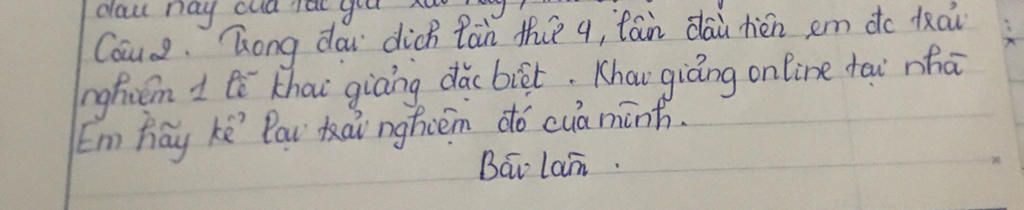 dấu này của tác giả
Câu 2. Trong đại dịch lần thứ 4, lần đầu tiên em đc trải
nghiệm 1 lễ khai giảng đặc biệt. Khai giảng online tại nhà
Em hãy kể lại trải nghiệm đó của mình.
Bài làm.